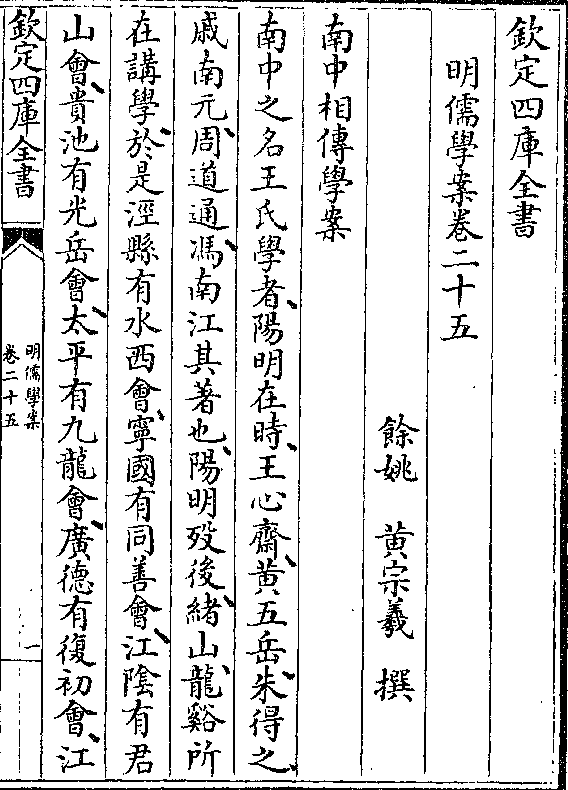 欽定四庫全書
明儒學案卷二十五
餘姚 黃宗羲 撰
南中相傳學案
南中之名王氏學者陽明在時王心齋黃五岳朱得之
戚南元周道通馮南江其著也陽明歿後緒山龍谿所
在講學於是涇縣有水西會寧國有同善會江陰有君
山會貴池有光岳會太平有九龍會廣德有復初會江
欽定四庫全書
明儒學案
卷二十五
一